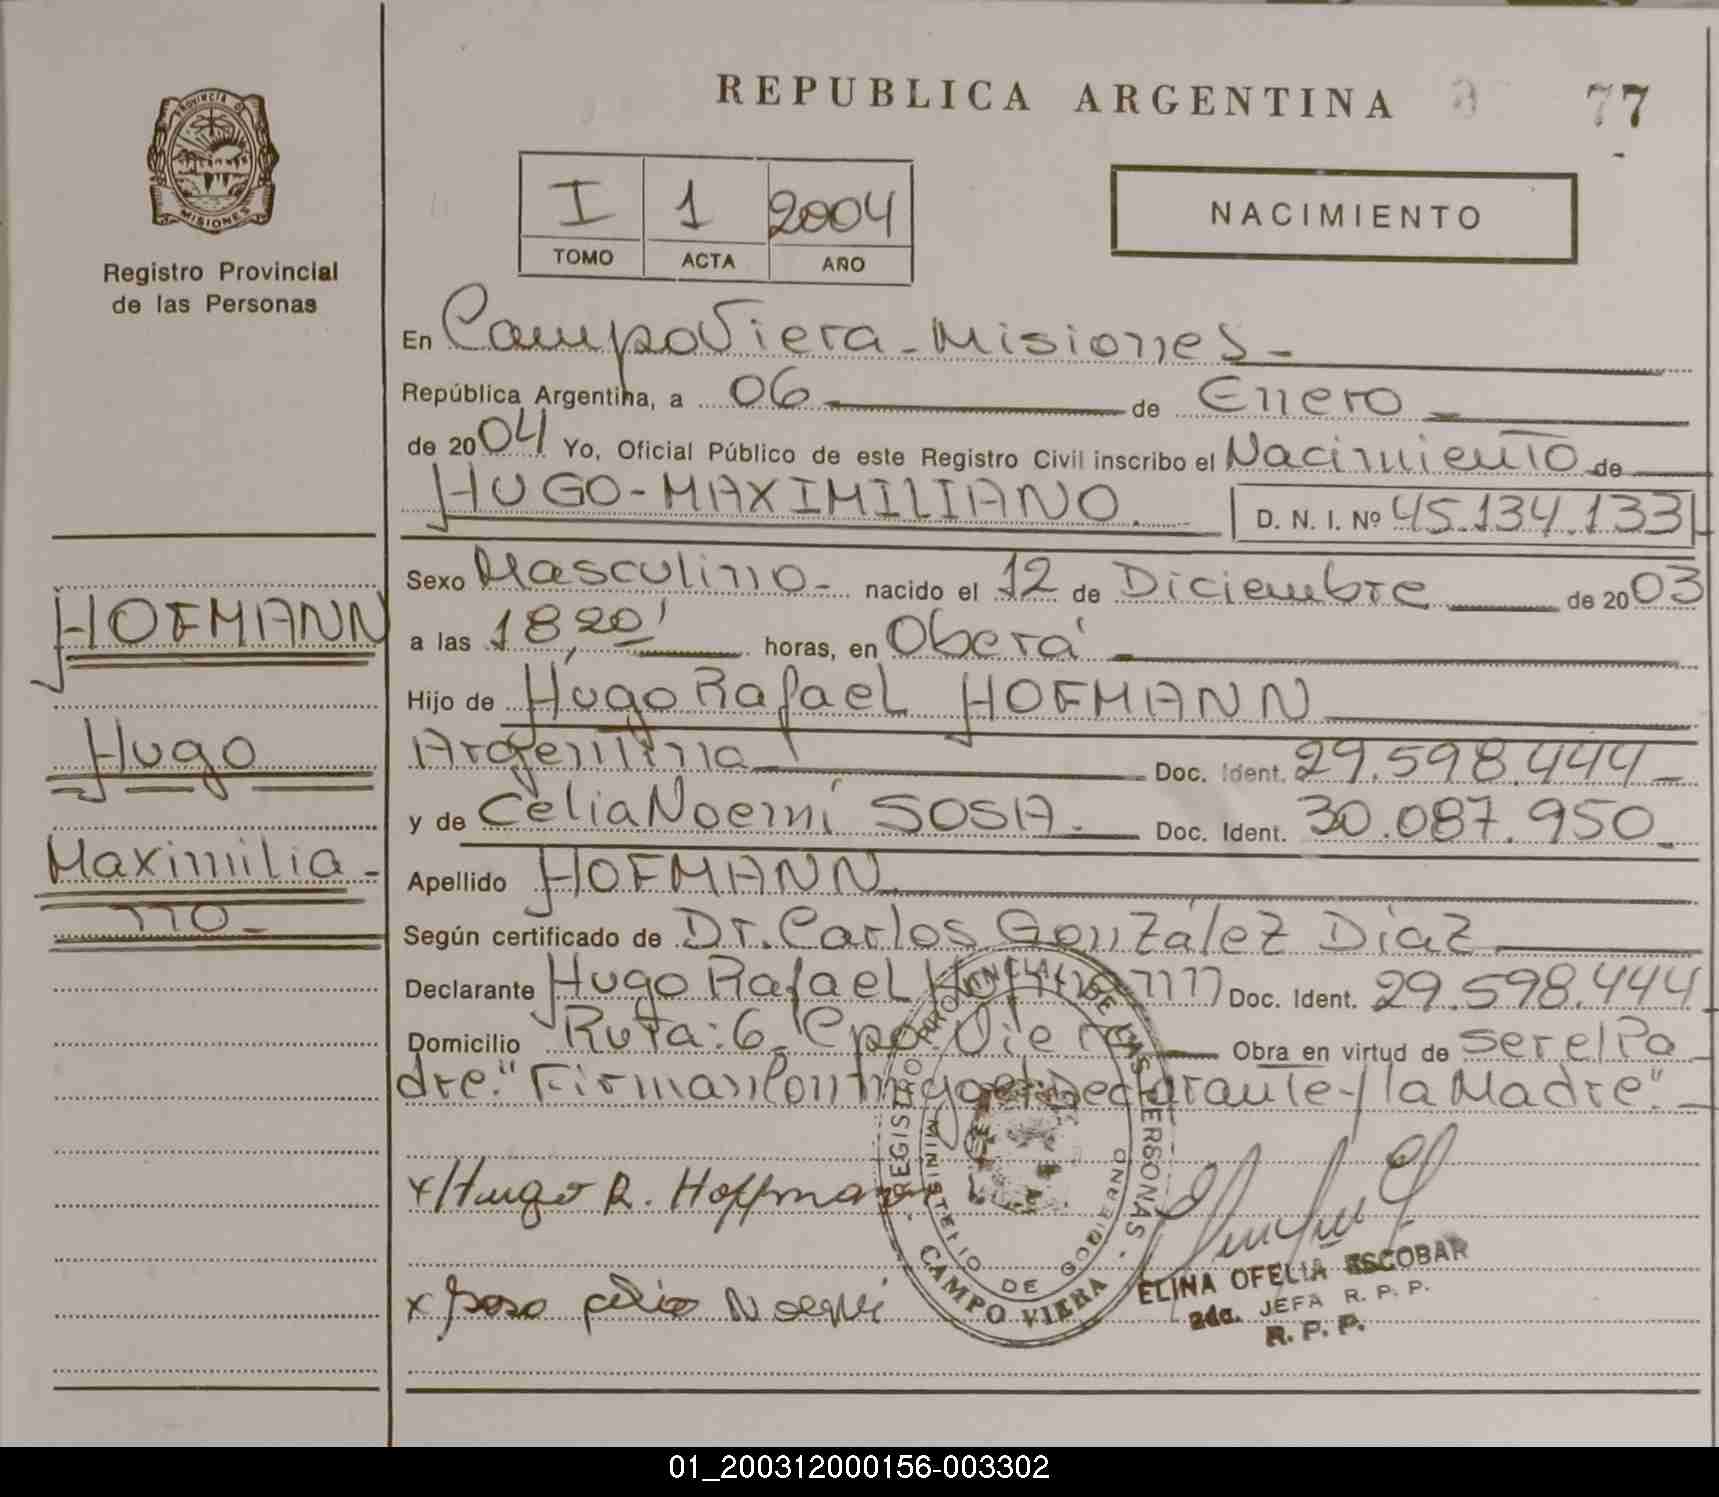 REPUBLICA ARGENTINA
77
PROVINCIA DE
MISIONES
Registro Provincial
de las Personas
I 1 2004
TOMO ACTA AÑO
NACIMIENTO
En Campo Viera - Misiones -
República Argentina, a 06 de Enero
de 2004 Yo, Oficial Público de este Registro Civil inscribo el Nacimiento de
HUGO-MAXIMILIANO. D. N. I. Nº 45.134.133
Sexo Masculino - nacido el 12 de Diciembre de 2003
a las 18,20' horas, en Oberá
Hijo de Hugo Rafael HOFMANN
Argentina Doc. Ident. 29.598.444 -
y de Celia Noemí SOSA. Doc. Ident. 30.087.950 -
Apellido HOFMANN
Según certificado de Dr. Carlos González Diaz
Declarante Hugo Rafael Hofmann Doc. Ident. 29.598.444
Domicilio Ruta: 6 - Cpo. Viera Obra en virtud de ser el Pa
dre." Firman Conmigo el Declarante y la Madre". -
HOFMANN
Hugo
Maximilia -
no -
x Hugo R. Hoffmann
x Sosa Celia Noemi
REGISTRO PROVINCIAL DE LAS PERSONAS
MINISTERIO DE GOBIERNO
CAMPO VIERA
ELINA OFELIA ESCOBAR
2da. JEFA R. P. P.
R. P. P.
01_200312000156-003302